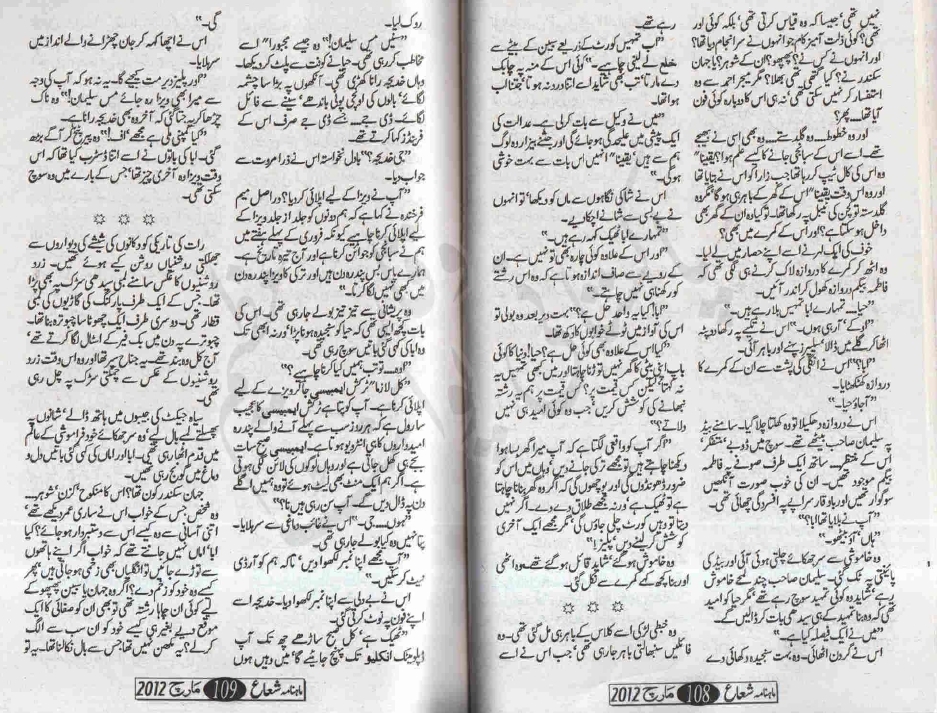 نہیں تھی، جیسا کہ وہ قیاس کرتی تھی، بلکہ کوئی اور
تھی؟ کوئی ذلت آمیز کام جو انہوں نے سرانجام دیا تھا؟
اور انہوں نے کس نے؟ پھپھو؟ ان کے شوہر؟ یا جہان
سکندر نے؟ کیا کہتی تھی بھلا؟ مگر میجر احمد سے وہ
استفسار کر نہیں سکتی تھی، نہ ہی اس کا دوبارہ کوئی فون
آیا تھا۔ پھر؟
اور وہ خطوط... وہ گلدستے... وہ بھی اسی نے بھیجے
تھے۔ اسے اس کے سبانجی جانے کا کیسے علم ہوا؟ یقیناً“
وہ اس کی کال ٹیپ کر رہا تھا جب زارا کو اس نے بتایا تھا
اور وہ اس وقت یقیناً“ اس کے گھر کے باہر ہی ہو گا، مگر وہ
گلدستہ تو کچن کی ٹیبل پہ رکھا تھا۔ تو کیا وہ ان کے گھر بھی
داخل ہو سکتا ہے؟ اور اس کے کمرے میں بھی؟
خوف کی ایک لہر نے اسے اپنے حصار میں لے لیا۔
وہ اٹھ کر کمرے کا دروازہ لاک کرنے ہی لگی تھی کہ
فاطمہ بیگم دروازہ کھول کر اندر آئیں۔
”حیا... تمہارے ابا تمہیں بلا رہے ہیں۔“
”اوکے، آ رہی ہوں۔“ اس نے تکیے پہ رکھا دوپٹہ
اٹھا کر گلے میں ڈالا، سلیپرز پہنے اور باہر آئی۔
”ابا؟“ اس نے انگلی کی پشت سے ان کے کمرے کا
دروازہ کھٹکھٹایا۔
”آجاؤ حیا۔“
اس نے دروازہ دھکیلا تو وہ کھلتا چلا گیا۔ سامنے بیڈ
پہ سلیمان صاحب بیٹھے تھے۔ سوچ میں ڈوبے، متفکر،
اس کے منتظر... ساتھ ایک طرف صوفے پہ فاطمہ
بیگم موجود تھیں۔ ان کی خوب صورت آنکھیں
سوگوار تھیں اور باوقار سراپے پہ افسردگی چھائی تھی۔
”آپ نے بلایا تھا ابا؟“
”ہاں، آؤ بیٹھو۔“
وہ خاموشی سے سر جھکائے چلتی ہوئی آئی اور بیڈ کی
پائنتی پہ ٹک گئی۔ سلیمان صاحب چند لمحے خاموش
رہے، شاید وہ کوئی تمہید سوچ رہے تھے، مگر حیا کو امید
تھی کہ وہ بنا تمہید کے ہی سیدھی بات کر ڈالیں گے۔
”میں نے ایک فیصلہ کیا ہے۔“
اس نے گردن اٹھائی۔ وہ بہت سنجیدہ دکھائی دے
رہے تھے۔
”اب تمہیں کورٹ کے ذریعے سبین کے بیٹے سے
خلع لے لینی چاہیے۔“ کوئی اس کے منہ پہ چابک
دے مارتا، تب بھی شاید اسے اتنا درد نہ ہوتا، جتنا اب
ہوا تھا۔
”میں نے وکیل سے بات کر لی ہے۔ عدالت کی
ایک پیشی میں علیحدگی ہو جائے گی اور جتنے بیزار وہ لوگ
ہم سے ہیں، یقیناً“ انہیں اس بات سے بہت خوشی
ہو گی۔“
اس نے شاکی نگاہوں سے ماں کو دیکھا، تو انہوں
نے بے بسی سے شانے اچکا دیے۔
”تمہارے ابا ٹھیک کہہ رہے ہیں۔“
”اور اس کے علاوہ کوئی چارہ بھی تو نہیں ہے۔ ان
کے رویے سے صاف اندازہ ہوتا ہے کہ وہ اس رشتے
کو رکھنا ہی نہیں چاہتے۔“
”ابا! کیا یہ واحد حل ہے؟“ بہت دیر بعد وہ بولی تو
اس کی آواز میں ٹوٹے خوابوں کا دکھ تھا۔
”کیا اس کے علاوہ بھی کوئی حل ہے؟ حیا! دنیا کا کوئی
باپ اپنی بیٹی کا گھر یوں نہیں توڑنا چاہتا اور میں کبھی تمہیں یہ
نہ کہتا، لیکن کس قیمت پر؟ کس قیمت پر ہم یہ رشتہ
نبھانے کی کوشش کریں، جب وہ کوئی امید ہی نہیں
دلاتے؟“
”اگر آپ کو واقعی لگتا ہے کہ آپ میرا گھر بسا ہوا
دیکھنا چاہتے ہیں تو مجھے ترکی جانے دیں وہاں میں اس کو
ضرور ڈھونڈوں گی اور پوچھوں گی کہ اگر وہ گھر بنانا چاہتا
ہے تو ٹھیک ہے ورنہ مجھے طلاق دے دے۔ اگر نہیں
دیتا تو وہیں کورٹ چلی جاؤں گی، مگر مجھے ایک آخری
کوشش کر لینے دیں، پلیز!“
وہ خاموش ہو گئے، شاید قائل ہو گئے تھے۔ وہ اٹھی
اور بنا کچھ کہے کمرے سے نکل گئی۔
☼ ☼ ☼
وہ خطی لڑکی اسے کلاس کے باہر ہی مل گئی تھی۔ وہ
فائلیں سنبھالتی باہر جا رہی تھی، جب اس نے اسے
ماہنامہ شعاع 108 مارچ 2012
روک لیا۔
”سنیں مس سلیمان!“ وہ جیسے مجبوراً“ اسے
مخاطب کر رہی تھی۔ حیا نے کوفت سے پلٹ کر دیکھا۔
وہاں خدیجہ رانا کھڑی تھی۔ آنکھوں پہ بڑا سا چشمہ
لگائے، بالوں کی اونچی پونی باندھے، سینے سے فائل
لگائے... ڈی جے... جسے ڈی جے صرف اس کے
فرینڈز کہا کرتے تھے۔
”جی خدیجہ؟“ بادل نخواستہ اس نے ذرا مروت سے
جواب دیا۔
”آپ نے ویزا کے لیے اپلائی کر دیا؟ دراصل میم
فرخندہ نے کہا ہے کہ ہم دونوں کو جلد از جلد ویزا کے
لیے اپلائی کرنا چاہیے کیونکہ فروری کے پہلے ہفتے میں
ہم نے سبانجی کو جوائن کرنا ہے اور آج تیرہ تاریخ ہے۔
ہمارے پاس بس پندرہ دن ہیں اور ترکی کا ویزا پندرہ دن
میں کبھی نہیں لگا کرتا۔“
وہ پریشانی سے تیز تیز بولے جا رہی تھی۔ اس کی
بات کچھ ایسی تھی کہ حیا کو سنجیدہ ہونا پڑا، ورنہ ابھی تک
وہ ابا کی کہی گئی باتیں سوچ رہی تھی۔
”اوہ... تو تب ہمیں کیا کرنا چاہیے؟“
”کل لازماً“ ٹرکش ایمبیسی جا کر ویزے کے لیے
اپلائی کرنا ہے۔ آپ کو پتا ہے ٹرکش ایمبیسی کا عجیب
سا رول ہے کہ ہر روز سب سے پہلے آنے والے پندرہ
امیدواروں کا ہی انٹرویو ہوتا ہے۔ ایمبیسی صبح سات
بجے ہی کھل جاتی ہے اور وہاں لوگوں کی لائن لگی ہوتی
ہے۔ اگر ہم ایک منٹ بھی لیٹ ہوئے تو وہ ہمیں اگلے
دن پہ ڈال دیں گے۔ آپ سن رہی ہیں نا؟“
”ہوں... جی۔“ اس نے غائب دماغی سے سر ہلایا۔
پتا نہیں وہ کیا بولے جا رہی تھی۔
”آپ مجھے اپنا نمبر لکھوا دیں، تاکہ ہم کو آرڈی
نیٹ کر سکیں۔“
اس نے بے دلی سے اپنا نمبر لکھوا دیا۔ خدیجہ اسے
اپنے فون پہ نوٹ کرتی گئی۔
”ٹھیک ہے، کل صبح ساڑھے چھ تک آپ
ڈپلومیٹک انکلیو تک پہنچ جائیے گا، میں وہیں ہوں
گی۔“
اس نے اچھا کہہ کر جان چھڑانے والے انداز میں
سر ہلایا۔
”اور پلیز دیر مت کیجیے گا۔ یہ نہ ہو کہ آپ کی وجہ
سے میرا بھی ویزا رہ جائے مس سلیمان!“ وہ ناک
چڑھا کر یہ جتا گئی کہ آخر وہ بھی خدیجہ رانا ہے۔
”کیا کمپنی ملی ہے مجھے، اف!“ وہ پیر پٹخ کر آگے بڑھ
گئی۔ ابا کی باتوں نے اسے اتنا ڈسٹرب کیا تھا کہ اس
وقت ویزا وہ آخری چیز تھا، جس کے بارے میں وہ سوچ
سکتی تھی۔
☼ ☼ ☼
رات کی تاریکی کو دکانوں کی شیشے کی دیواروں سے
جھلکتی روشنیاں روشن کیے ہوئے تھیں۔ زرد
روشنیوں کا عکس سامنے لمبی سیدھی سڑک پہ بھی پڑتا
تھا۔ جس کے ایک طرف پارکنگ کی گاڑیوں کی لمبی
قطار تھی۔ دوسری طرف ایک چھوٹا سا چبوترہ بنا تھا۔
چبوترے پہ دن میں بک فیئر کے اسٹال لگا کرتے تھے،
آج کل وہ بند تھے۔ یہ جناح سپر تھا اور وہ اس وقت زرد
روشنیوں کے عکس سے چمکتی سڑک پہ چل رہی
تھی۔
سیاہ جیکٹ کی جیبوں میں ہاتھ ڈالے، شانوں پہ
پھسلتے لمبے بال لیے، وہ سر جھکائے خود فراموشی کے عالم
میں قدم اٹھا رہی تھی۔ ابا اور اماں کی کہی گئی باتیں دل و
دماغ میں گونج رہی تھیں۔
جہان سکندر کون تھا؟ اس کا منکوح، کزن، شوہر...
وہ شخص، جس کے خواب اس نے ساری عمر دیکھے تھے،
اتنی آسانی سے وہ کیسے اس سے دستبردار ہو جائے؟ کیا
ابا، اماں نہیں جانتے تھے کہ خواب اگر اپنے ہاتھوں
سے توڑے جائیں تو انگلیاں بھی زخمی ہو جاتی ہیں، پھر
کیسے وہ خود کو زخم دے؟ اگر وہ جہان یا سبین پھپھو کے
لیے کوئی ان چاہا رشتہ تھی تو بھی ان کو صفائی کا ایک
موقع دیے بغیر ہی کیسے خود کو ان سب سے الگ
کر لے؟ یہ مکھن نہیں تھا، جس سے بال نکالنا تھا۔ یہ تو
ماہنامہ شعاع 109 مارچ 2012